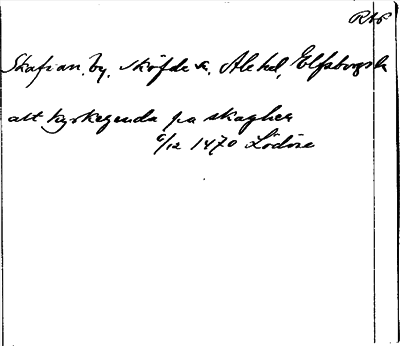 RAP
Skafian, by, Sköfde sn. Ale hd, Elfsborgs l.
att kyrkegenda pa skagher
6/12 1470 Lödöse